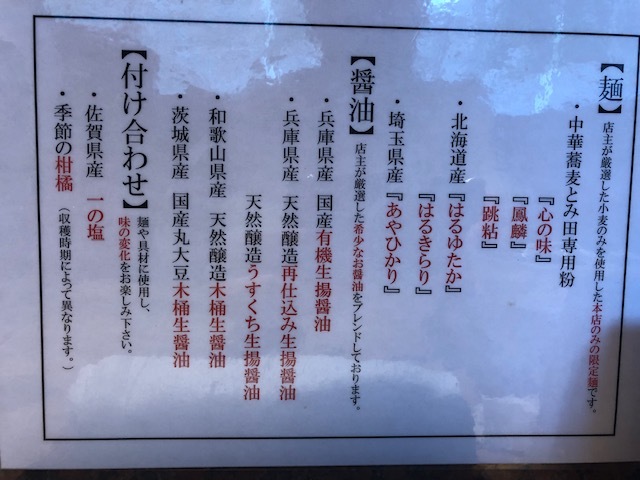 【麺】店主が厳選した小麦のみを使用した本店のみの限定麺です。
・中華蕎麦とみ田専用粉
『心の味』
『鳳麟』
『跳粘』
・北海道産『はるゆたか』
『はるきらり』
・埼玉県産『あやひかり』
【醤油】店主が厳選した希少なお醤油をブレンドしております。
・兵庫県産 国産有機生揚醤油
・兵庫県産 天然醸造再仕込み生揚醤油
天然醸造うすくち生揚醤油
・和歌山県産 天然醸造木桶生醤油
・茨城県産 国産丸大豆木桶生醤油
【付け合わせ】麺や具材に使用し、
味の変化をお楽しみ下さい。
・佐賀県産 一の塩
・季節の柑橘(収穫時期によって異なります。)